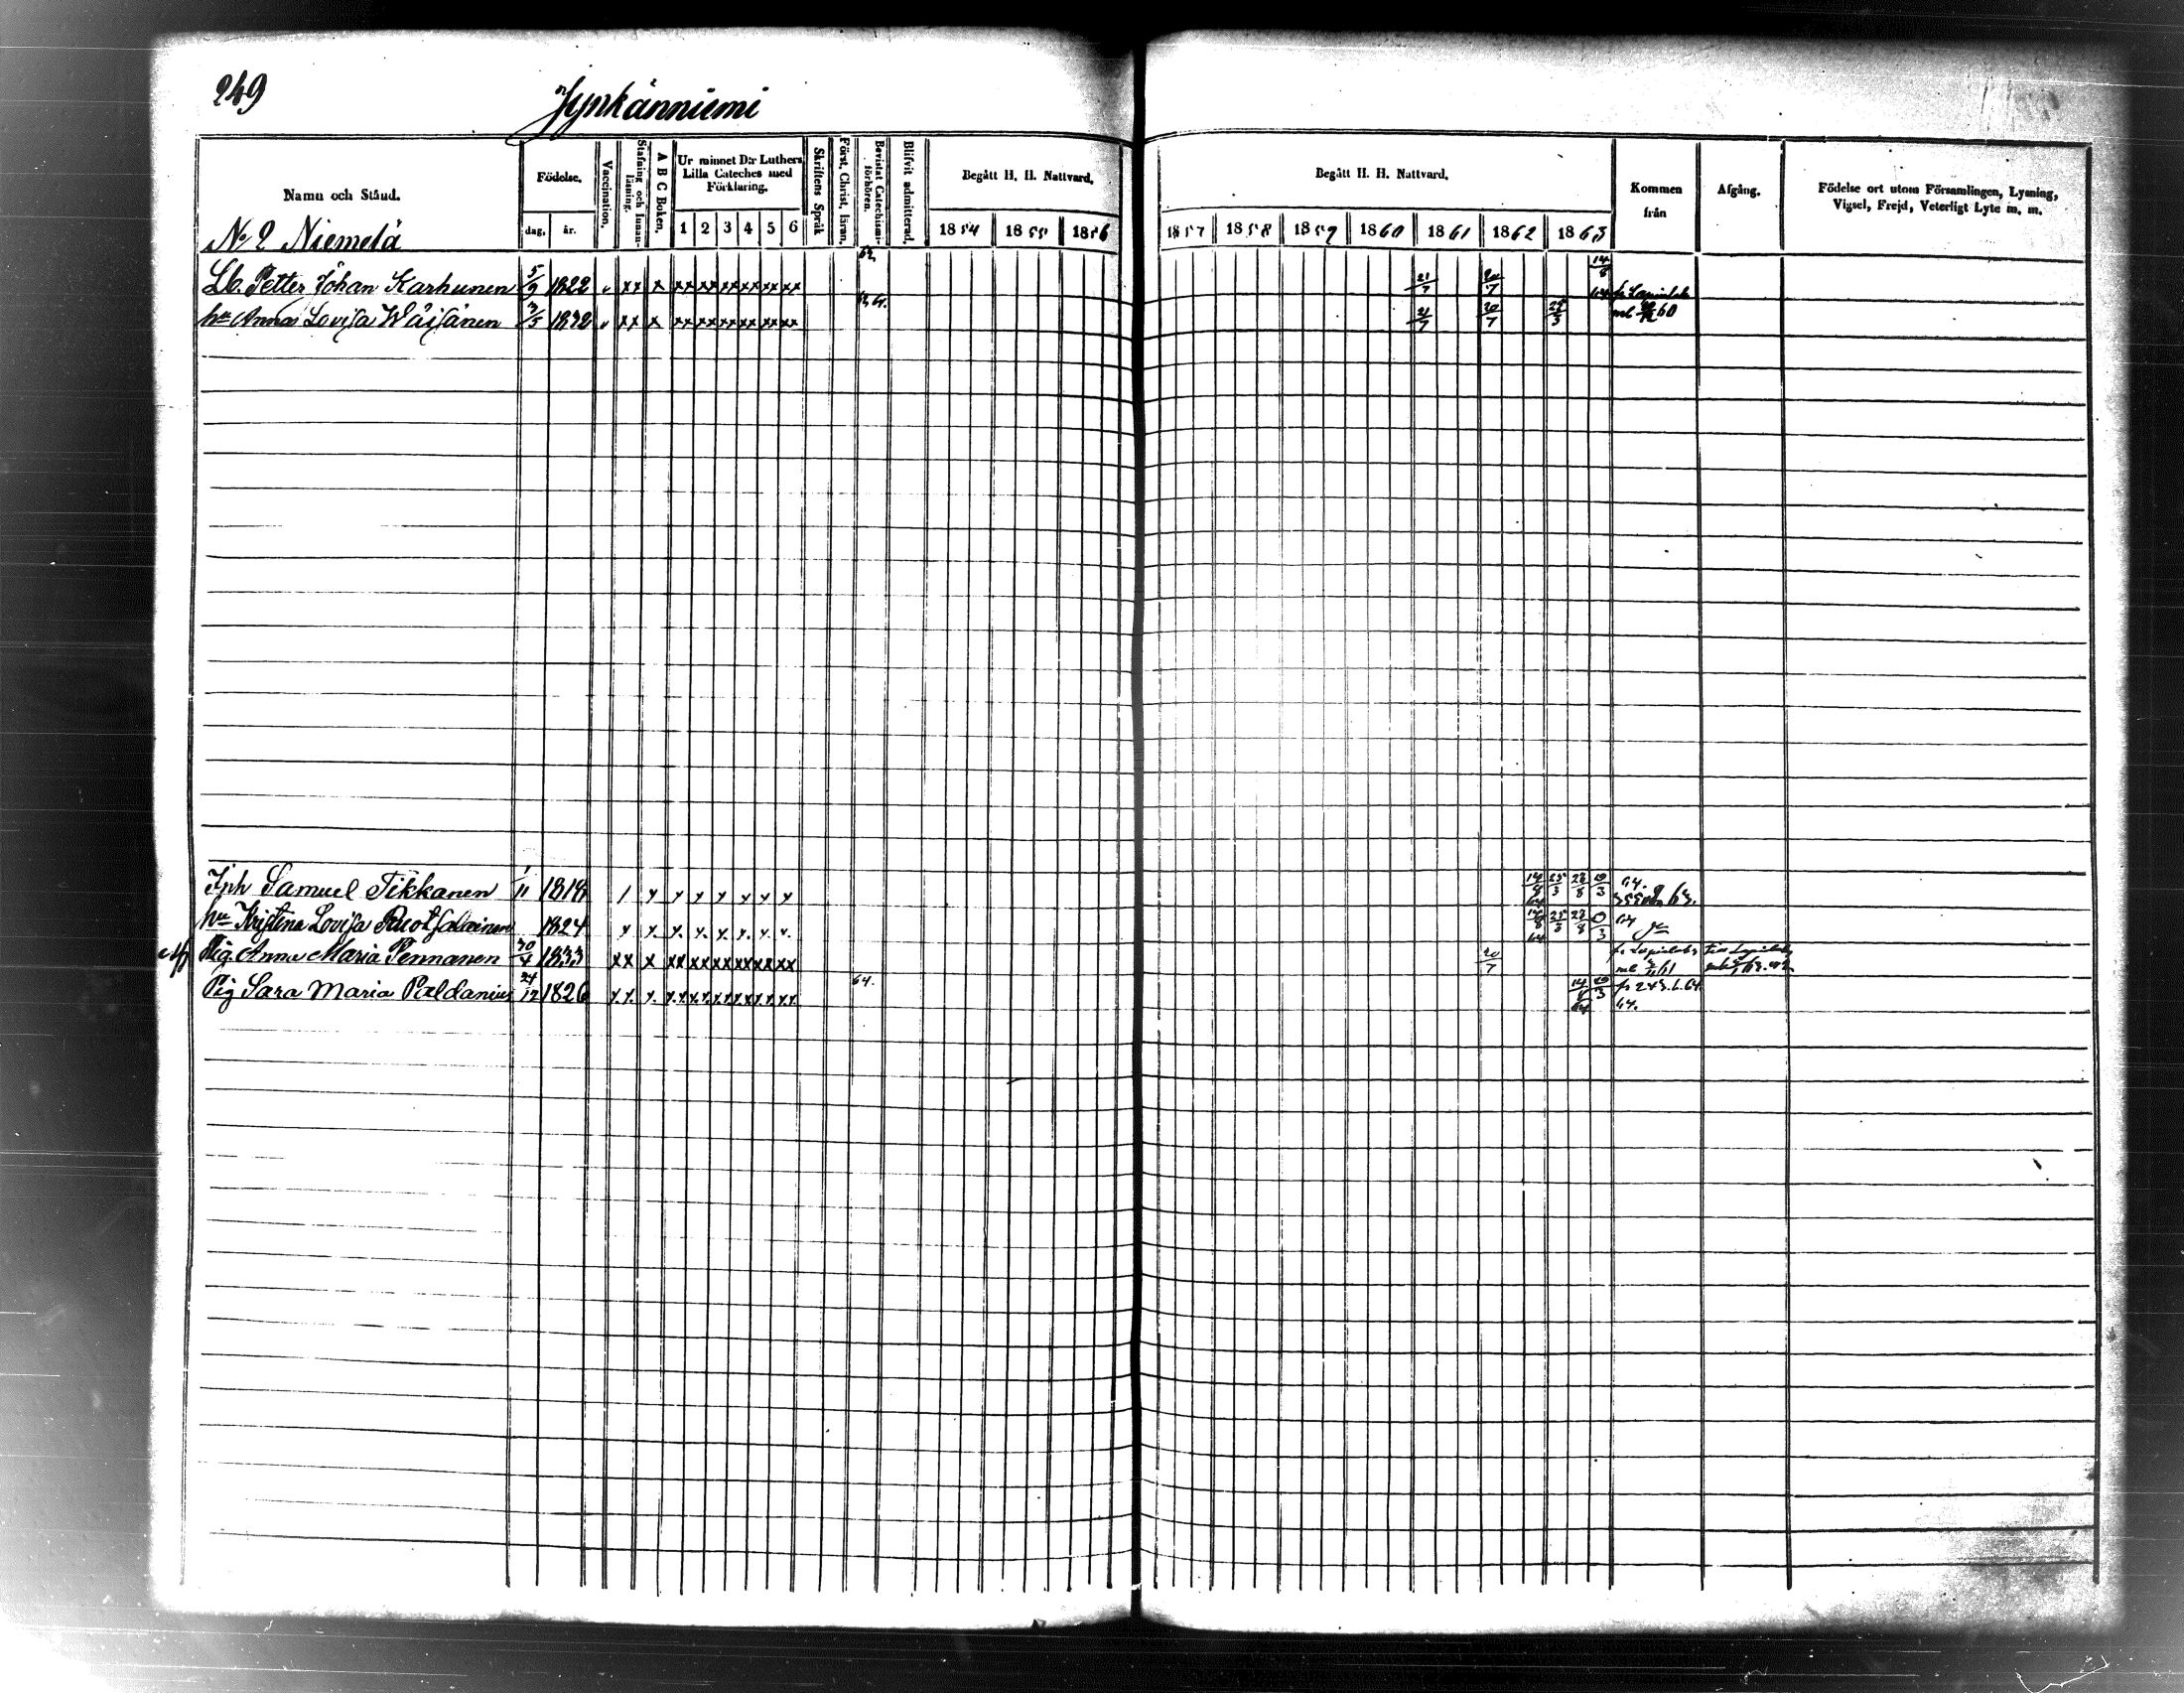 249
Jynkänniemi
Namn och Stånd.
Födelse.
dag.
år.
Vaccination.
Stafning och Innanläsning.
A B C Boken.
Ur minnet D:r Luthers Lilla Cateches med Förklaring.
1 2 3 4 5 6
Skriftens Språk
Först. Christ. läran.
Bevistat Catechismi-förhören.
Blifvit admitterad.
Begått H. H. Nattvard.
1854 1855 1856
Begått H. H. Nattvard.
1857 1858 1859 1860 1861 1862 1863
Kommen från
Afgång.
Födelse ort utom Församlingen, Lysning, Vigsel, Frejd, Veterligt Lyte m. m.
No 2 Niemelä
Petter Johan Karhunen 5/9 1822 v xx x xx xx xx xx xx xx 62 21/7 20/7 14/8 64
hu Anna Lovisa Wäisänen 3/5 1832 v xx x xx xx xx xx xx xx 21/7 20/7 25/3 60
Inh Samuel Tikkanen 1/11 1818 14/8 64 25/3 23/8 64.
hu Kristina Lovisa Ruotsalainen 1824 14/8 64 25/3 23/8 64
Pig. Anna Maria Pennanen 30/4 1833 xx x xx xx xx xx xx xx 20/7
Pig Sara Maria Paldanius 24/12 1826 64. 14/8 64 fr 243. 64.